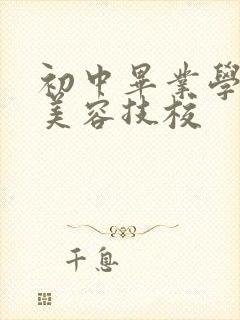 初中畢業學
美容技校
千息